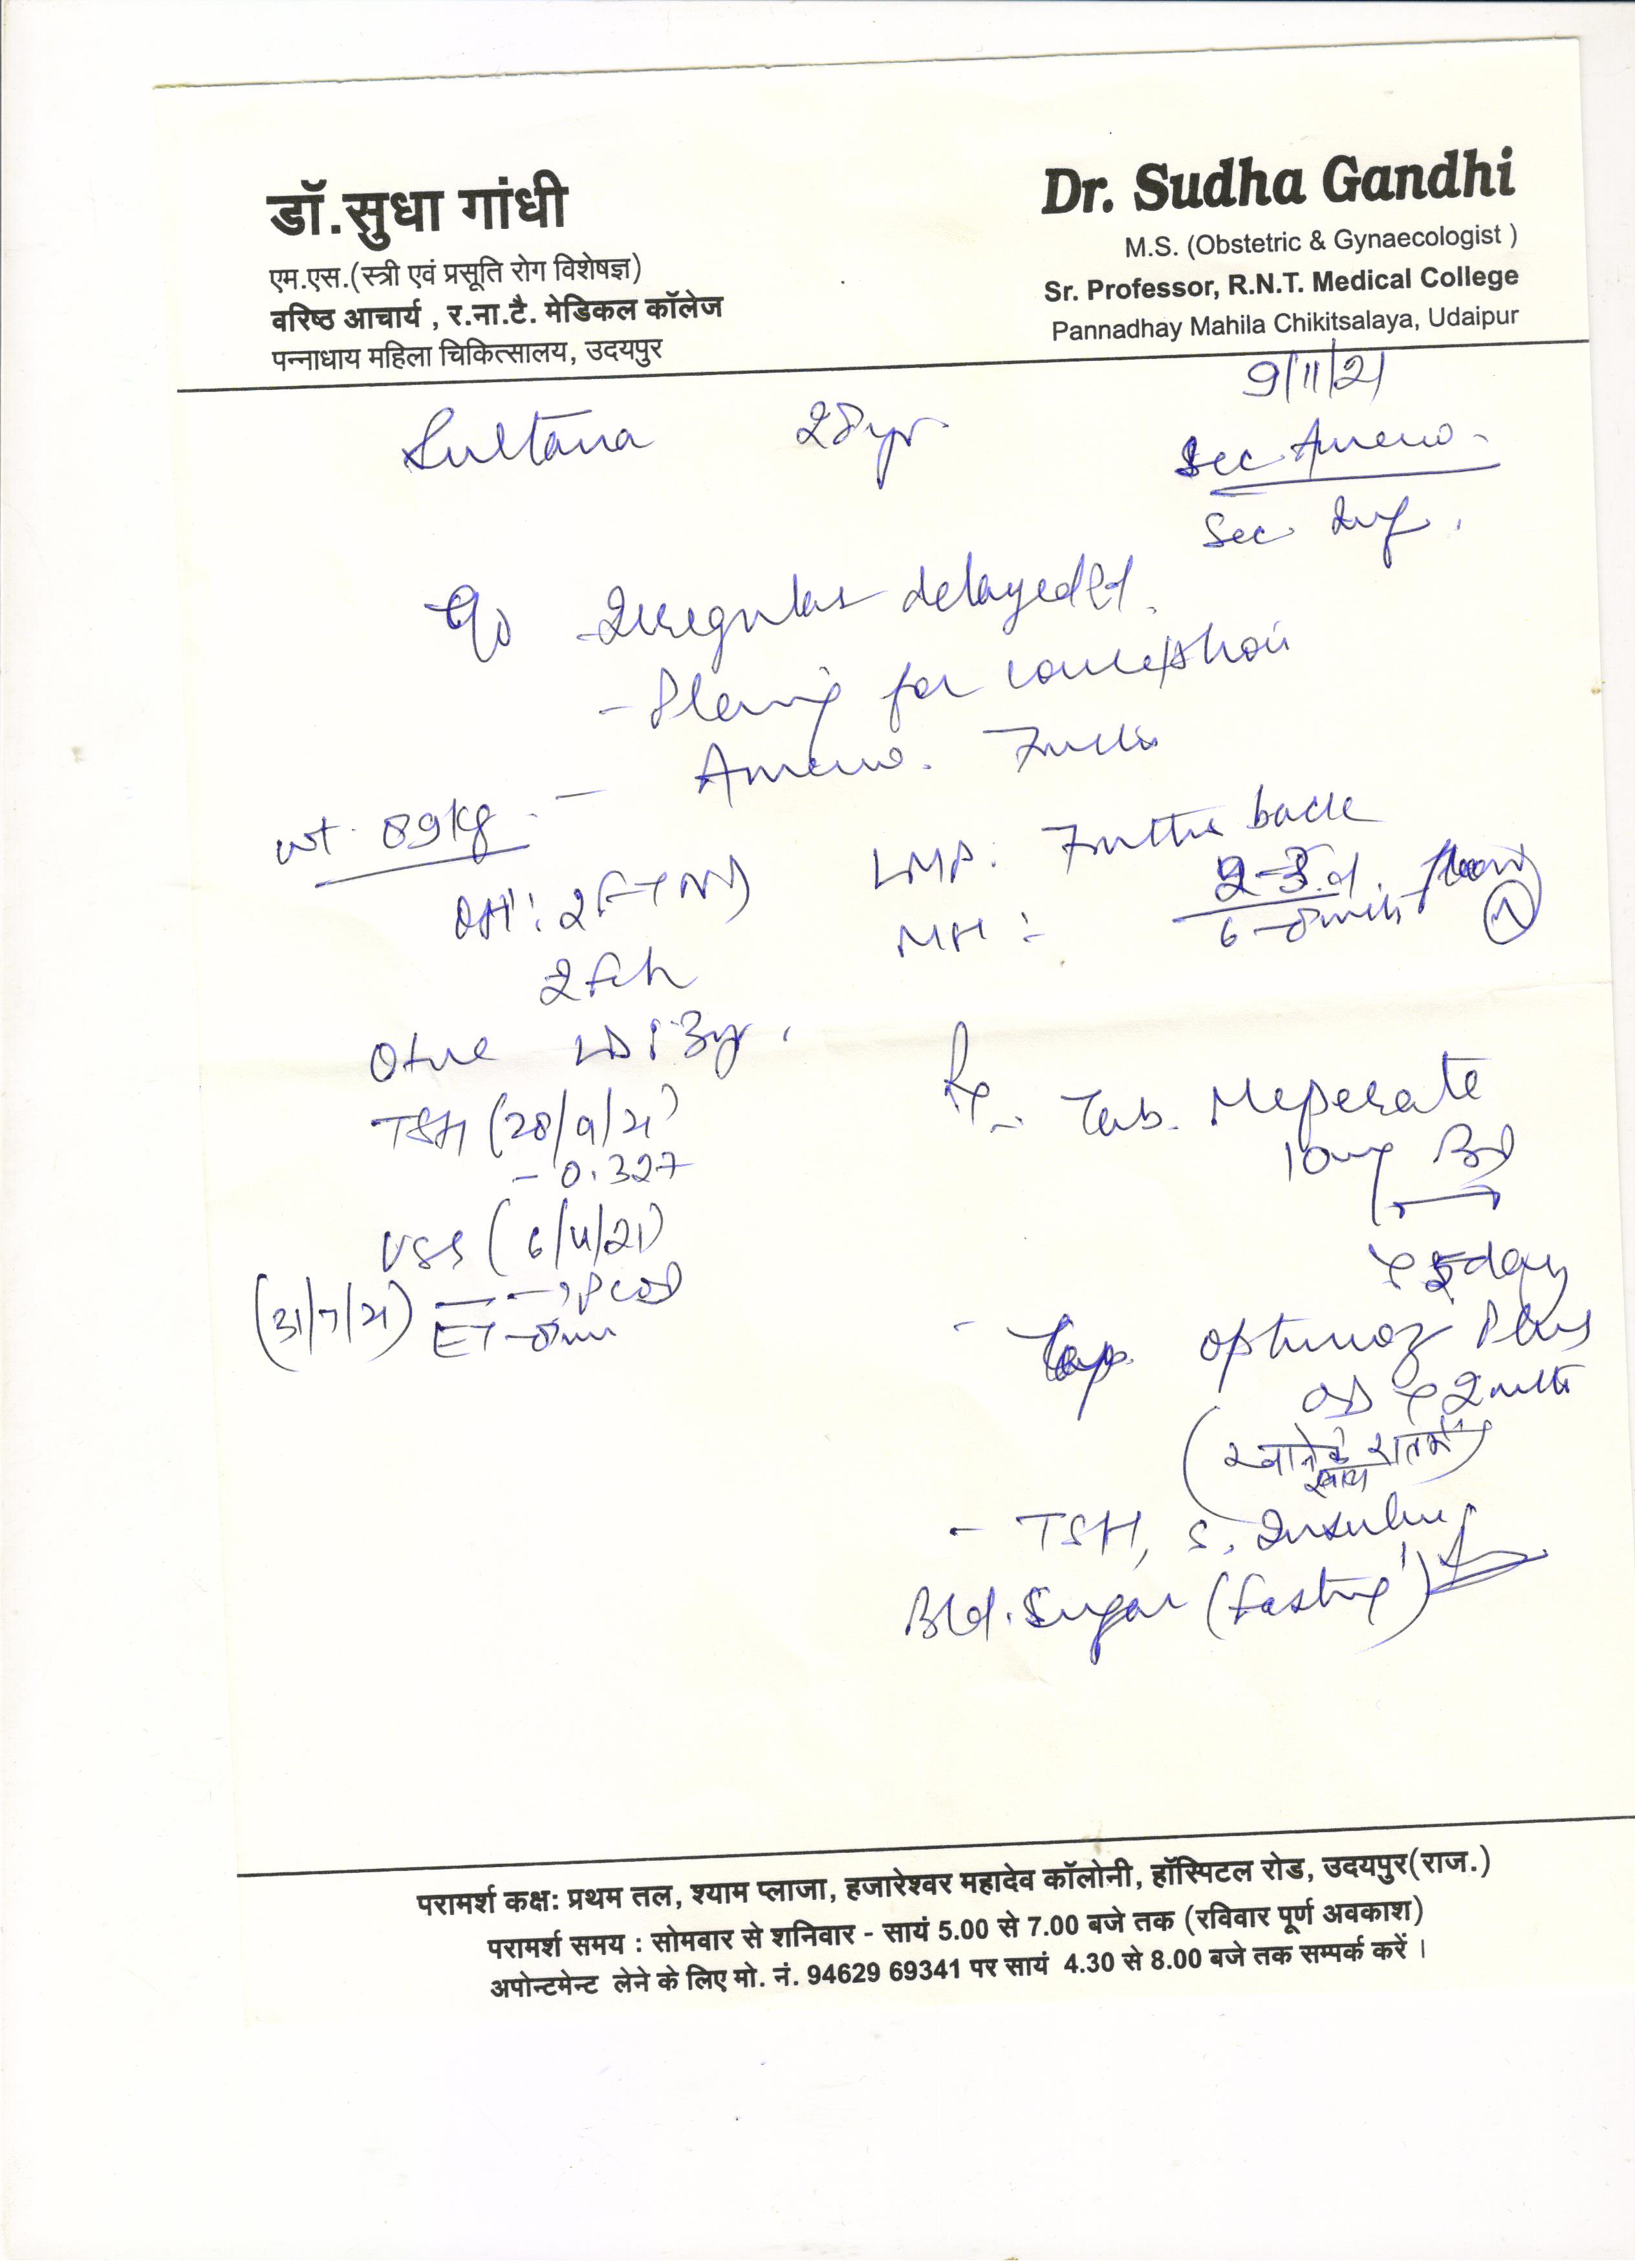 डॉ.सुधा गांधी
एम.एस.(स्त्री एवं प्रसूति रोग विशेषज्ञ)
वरिष्ठ आचार्य , र.ना.टै. मेडिकल कॉलेज
पन्नाधाय महिला चिकित्सालय, उदयपुर
Dr. Sudha Gandhi
M.S. (Obstetric & Gynaecologist )
Sr. Professor, R.N.T. Medical College
Pannadhay Mahila Chikitsalaya, Udaipur
9/11/21
Sultana 28yr.
Sec Ameno.
Sec. Inf.
C/o Irregular delayed
- Planing for conception
- Ameno. 7mths
wt. 89kg
LMP: 7mths back
OH: 2FTND
MH:- 2-3d. flow
6-8mths N
2 fch
LD: 3yr.
TSH (28/9/21)
- 0.327
USG (6/11/21)
(31/7/21) → PCOD
ET-8mm
Rx
- Tab. Meperate
10mg BD
x 5days
- Cap. optimoz Plus
OD x 2mths
(खाने के साथ रात में)
- TSH, S. Insulin
Bld. Sugar (fasting)
परामर्श कक्ष: प्रथम तल, श्याम प्लाजा, हजारेश्वर महादेव कॉलोनी, हॉस्पिटल रोड, उदयपुर(राज.)
परामर्श समय : सोमवार से शनिवार - सायं 5.00 से 7.00 बजे तक (रविवार पूर्ण अवकाश)
अपोन्टमेन्ट लेने के लिए मो. नं. 94629 69341 पर सायं 4.30 से 8.00 बजे तक सम्पर्क करें ।